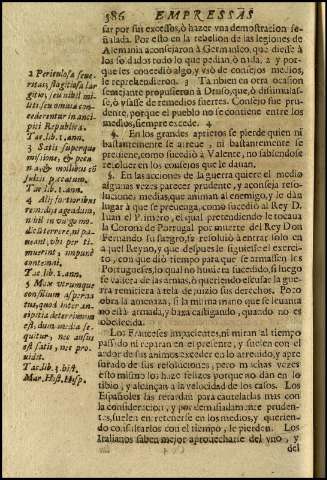 586 EMPRESSAS
sar por sus excessos, ò hazer vna demostracion se-
ñalada. Por esto en la rebelion de las legiones de
Alemania aconsejaron à Germanico, que diesse à
los soldados todo lo que pedian, ò nada, 2 y por-
que les concediò algo, y vsò de consejos medios,
le reprehendieron. 3 Tambien en otra ocasion
semejante propusieron à Druso, que, ò dissimulas-
se, ò vsasse de remedios fuertes. Consejo fue pru-
dente, porque el pueblo no se contiene entre los
medios, siempre excede. 4
4. En los grandes aprietos se pierde quien ni
bastantemente se atreue, ni bastantemente se
preuiene, como sucediò à Valente, no sabiendose
resoluer en los consejos que le dauan.
5. En las acciones de la guerra quiere el miedo
algunas vezes parecer prudente, y aconseja reso-
luciones medias, que animan al enemigo, y le dàn
lugar à que se preuenga, como sucediò al Rey D.
Iuan el Primero, el qual pretendiendo le tocaua
la Corona de Portugal por muerte del Rey Don
Fernando su suegro, se resoluiò à entrar solo en
aquel Reyno, y que despues le siguiesse el exerci-
to, con que diò tiempo para que se armassen los
Portugueses, lo qual no huuiera sucedido, si luego
se valiera de las armas, ò queriendo escusar la gue-
rra remitiera à tela de juizio sus derechos. Poco
obra la amenaza, si la misma mano que se leuanta
no està armada, y baxa castigando, quando no es
obedecida.
Los Franceses impacientes, ni miran al tiempo
passado ni reparan en el presente, y suelen con el
ardor de sus animos exceder en lo atreuido, y apre
surado de sus resoluciones, pero muchas vezes
esto mismo los haze felizes porque no dàn en lo
tibio, y alcançan à la velocidad de los casos. Los
Españoles las retardan para cautelarlas mas con
la consideracion, y por demasiadamente pruden-
tes, suelen entretenerse en los medios, y querien-
do consultarlos con el tiempo, le pierden. Los
Italianos saben mejor aprouecharse del vno, y
del
2 Periculosa seue-
ritas, flagitiosa lar
gitio, seu nihil mi-
liti, seu omnia con-
cederentur in anci-
piti Republica.
Tac. lib. 1. ann.
3 Satis superque
missione, & pecu-
nia, & mollibus cō
sultis peccatum.
Tac. lib. 1. ann.
4 Alij fortioribus
remedijs agendum,
nihil in vulgo mo-
dicū: terrere, ni pa-
ueant, vbi per ti-
muerint, impune
contemni.
Tac. lib. 1. ann.
5 Mox vtrumque
consilium asperna-
tus, quod inter an-
cipitia deterrimum
est, dum media se-
quitur, nec ausus
est satis, nec pro-
uidit.
Tac. lib. 3. hist.
Mar. Hist. Hisp.